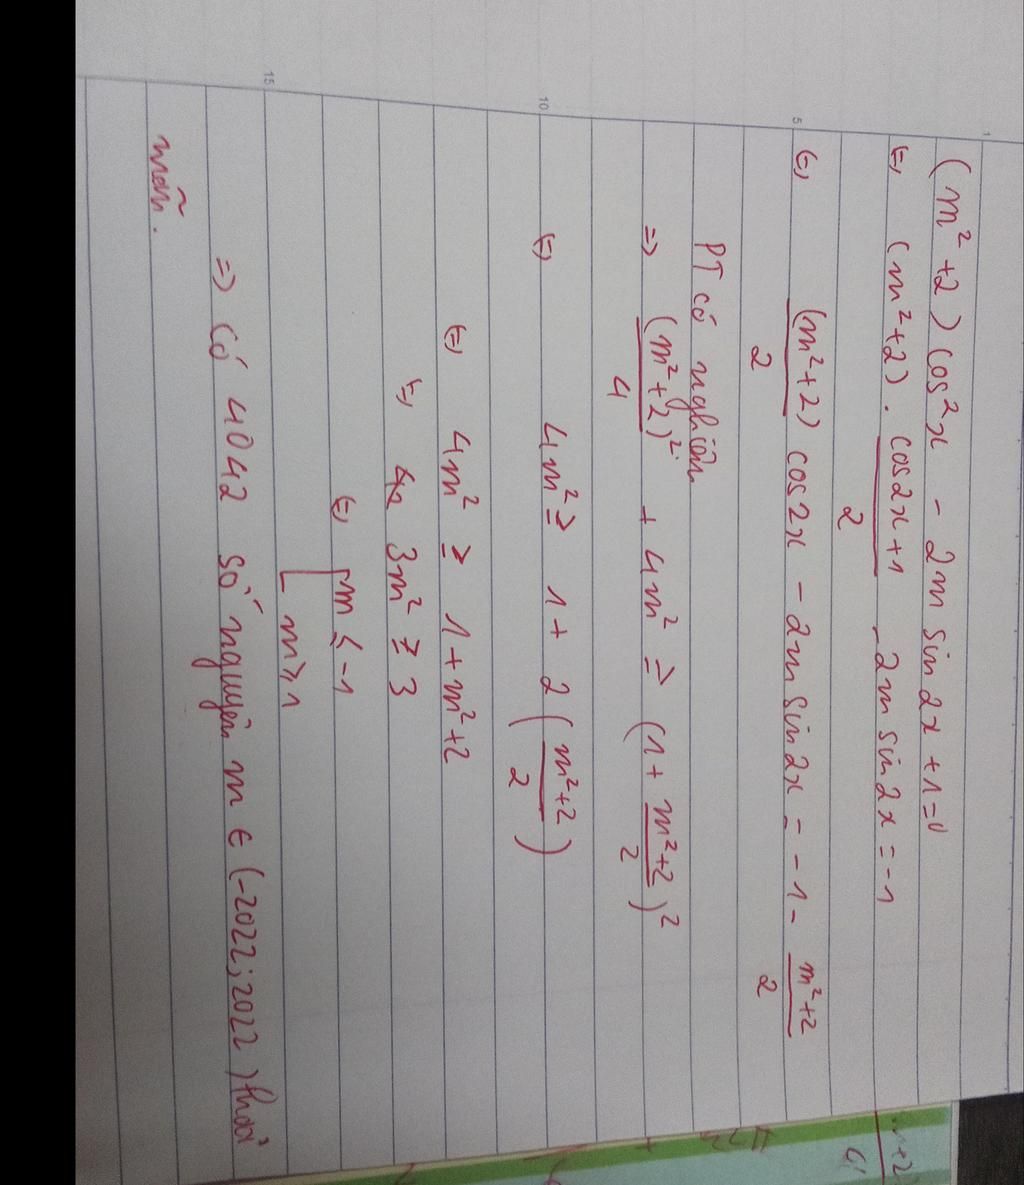 (m² + 2) cos²x - 2m sin2x + 1 = 0
(=) (m² + 2) . (cos2x + 1)/2 - 2m sin2x = -1
(=) (m² + 2)/2 cos2x - 2m sin2x = -1 - (m² + 2)/2
PT có nghiệm
=> (m² + 2)²/4 + 4m² ≥ (1 + (m² + 2)/2)²
(=) 4m² ≥ 1 + 2((m² + 2)/2)
(=) 4m² ≥ 1 + m² + 2
(=) 3m² ≥ 3
(=) [ m ≤ -1
m ≥ 1
=> có 4042 số nguyên m ∈ (-2022; 2022) thoả
mãn.
1
5
10
15